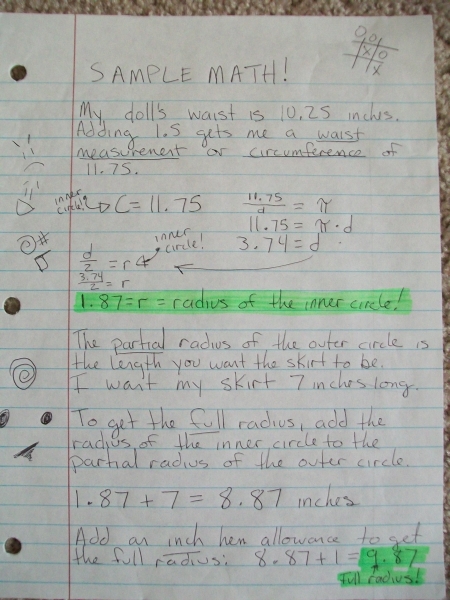 SAMPLE MATH!
My doll's waist is 10.25 inches.
Adding 1.5 gets me a waist
measurement or circumference of
11.75.
inner
circle!
C = 11.75
11.75/d = π
11.75 = π·d
3.74 = d
inner
circle!
d/2 = r
3.74/2 = r
1.87 = r = radius of the inner circle!
The partial radius of the outer circle is
the length you want the skirt to be.
I want my skirt 7 inches long.
To get the full radius, add the
radius of the inner circle to the
partial radius of the outer circle.
1.87 + 7 = 8.87 inches
Add an inch hem allowance to get
the full radius: 8.87 + 1 = 9.87
full radius!